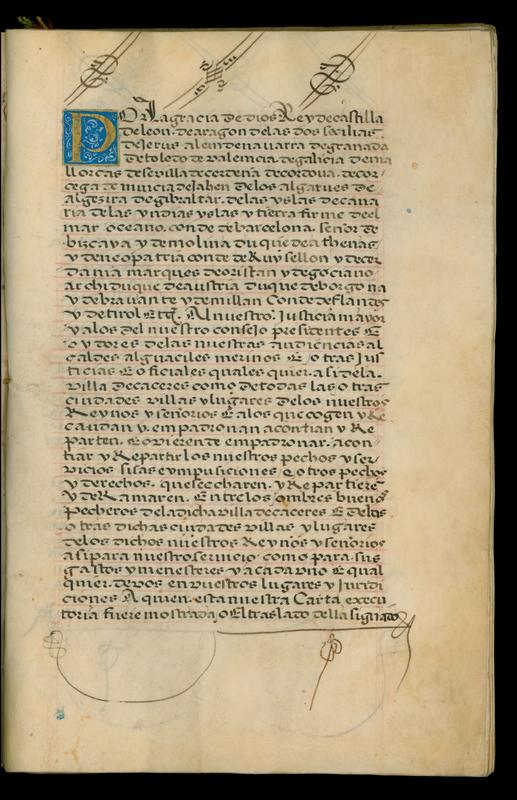 POr la gracia de dios Rey de castilla
de leon. de aragon de las dos secilias
de Jerusalem de navarra de granada
de toledo de valencia. de galicia de ma
llorcas de sevilla de cerdena de cordova. de cor
cega de murcia de Jahen de los algarves de
algezira de gibraltar. de las yslas de cana
ria de las yndias yslas y tierra firme del
mar oceano. conde de barcelona. señor de
bizcaya y de molina duque de athenas
y de neopatria conde de Ruysellon y de cer
dania marques de oristan y de gociano
archiduque de austria duque de borgoña
y de bravante y de millan Conde de flandes
y de tirol Etc. A nuestro. Justicia mayor
y a los del nuestro consejo presidentes E
oydores de las nuestras audiencias al
caldes alguaciles merinos E otras Jus
ticias E oficiales quales quier. asi de la.
villa de caceres como de todas las otras
ciudades villas y lugares de los nuestros
Reynos y señorios E a los que cogen y Re
caudan y. empadronan acontian y Re
parten. E ovierente empadronar. acon
tiar y Repartir los nuestros pechos y ser
vicios sisas e ympusiciones E otros pechos
y derechos. que se echaren. y Repartiere
y deRamaren. Entre los ombres buenos
pecheros de la dicha villa de caceres E de las
otras dichas ciudades villas y lugares
de los dichos nuestros Reynos y señorios
asi para nuestro servicio como para. sus
gastos y menesteres. y a cada uno E qual
quier. de vos en vuestros lugares y Juridi
ciones A quien. esta nuestra Carta execu
toria fuere mostrada o El traslado della signado